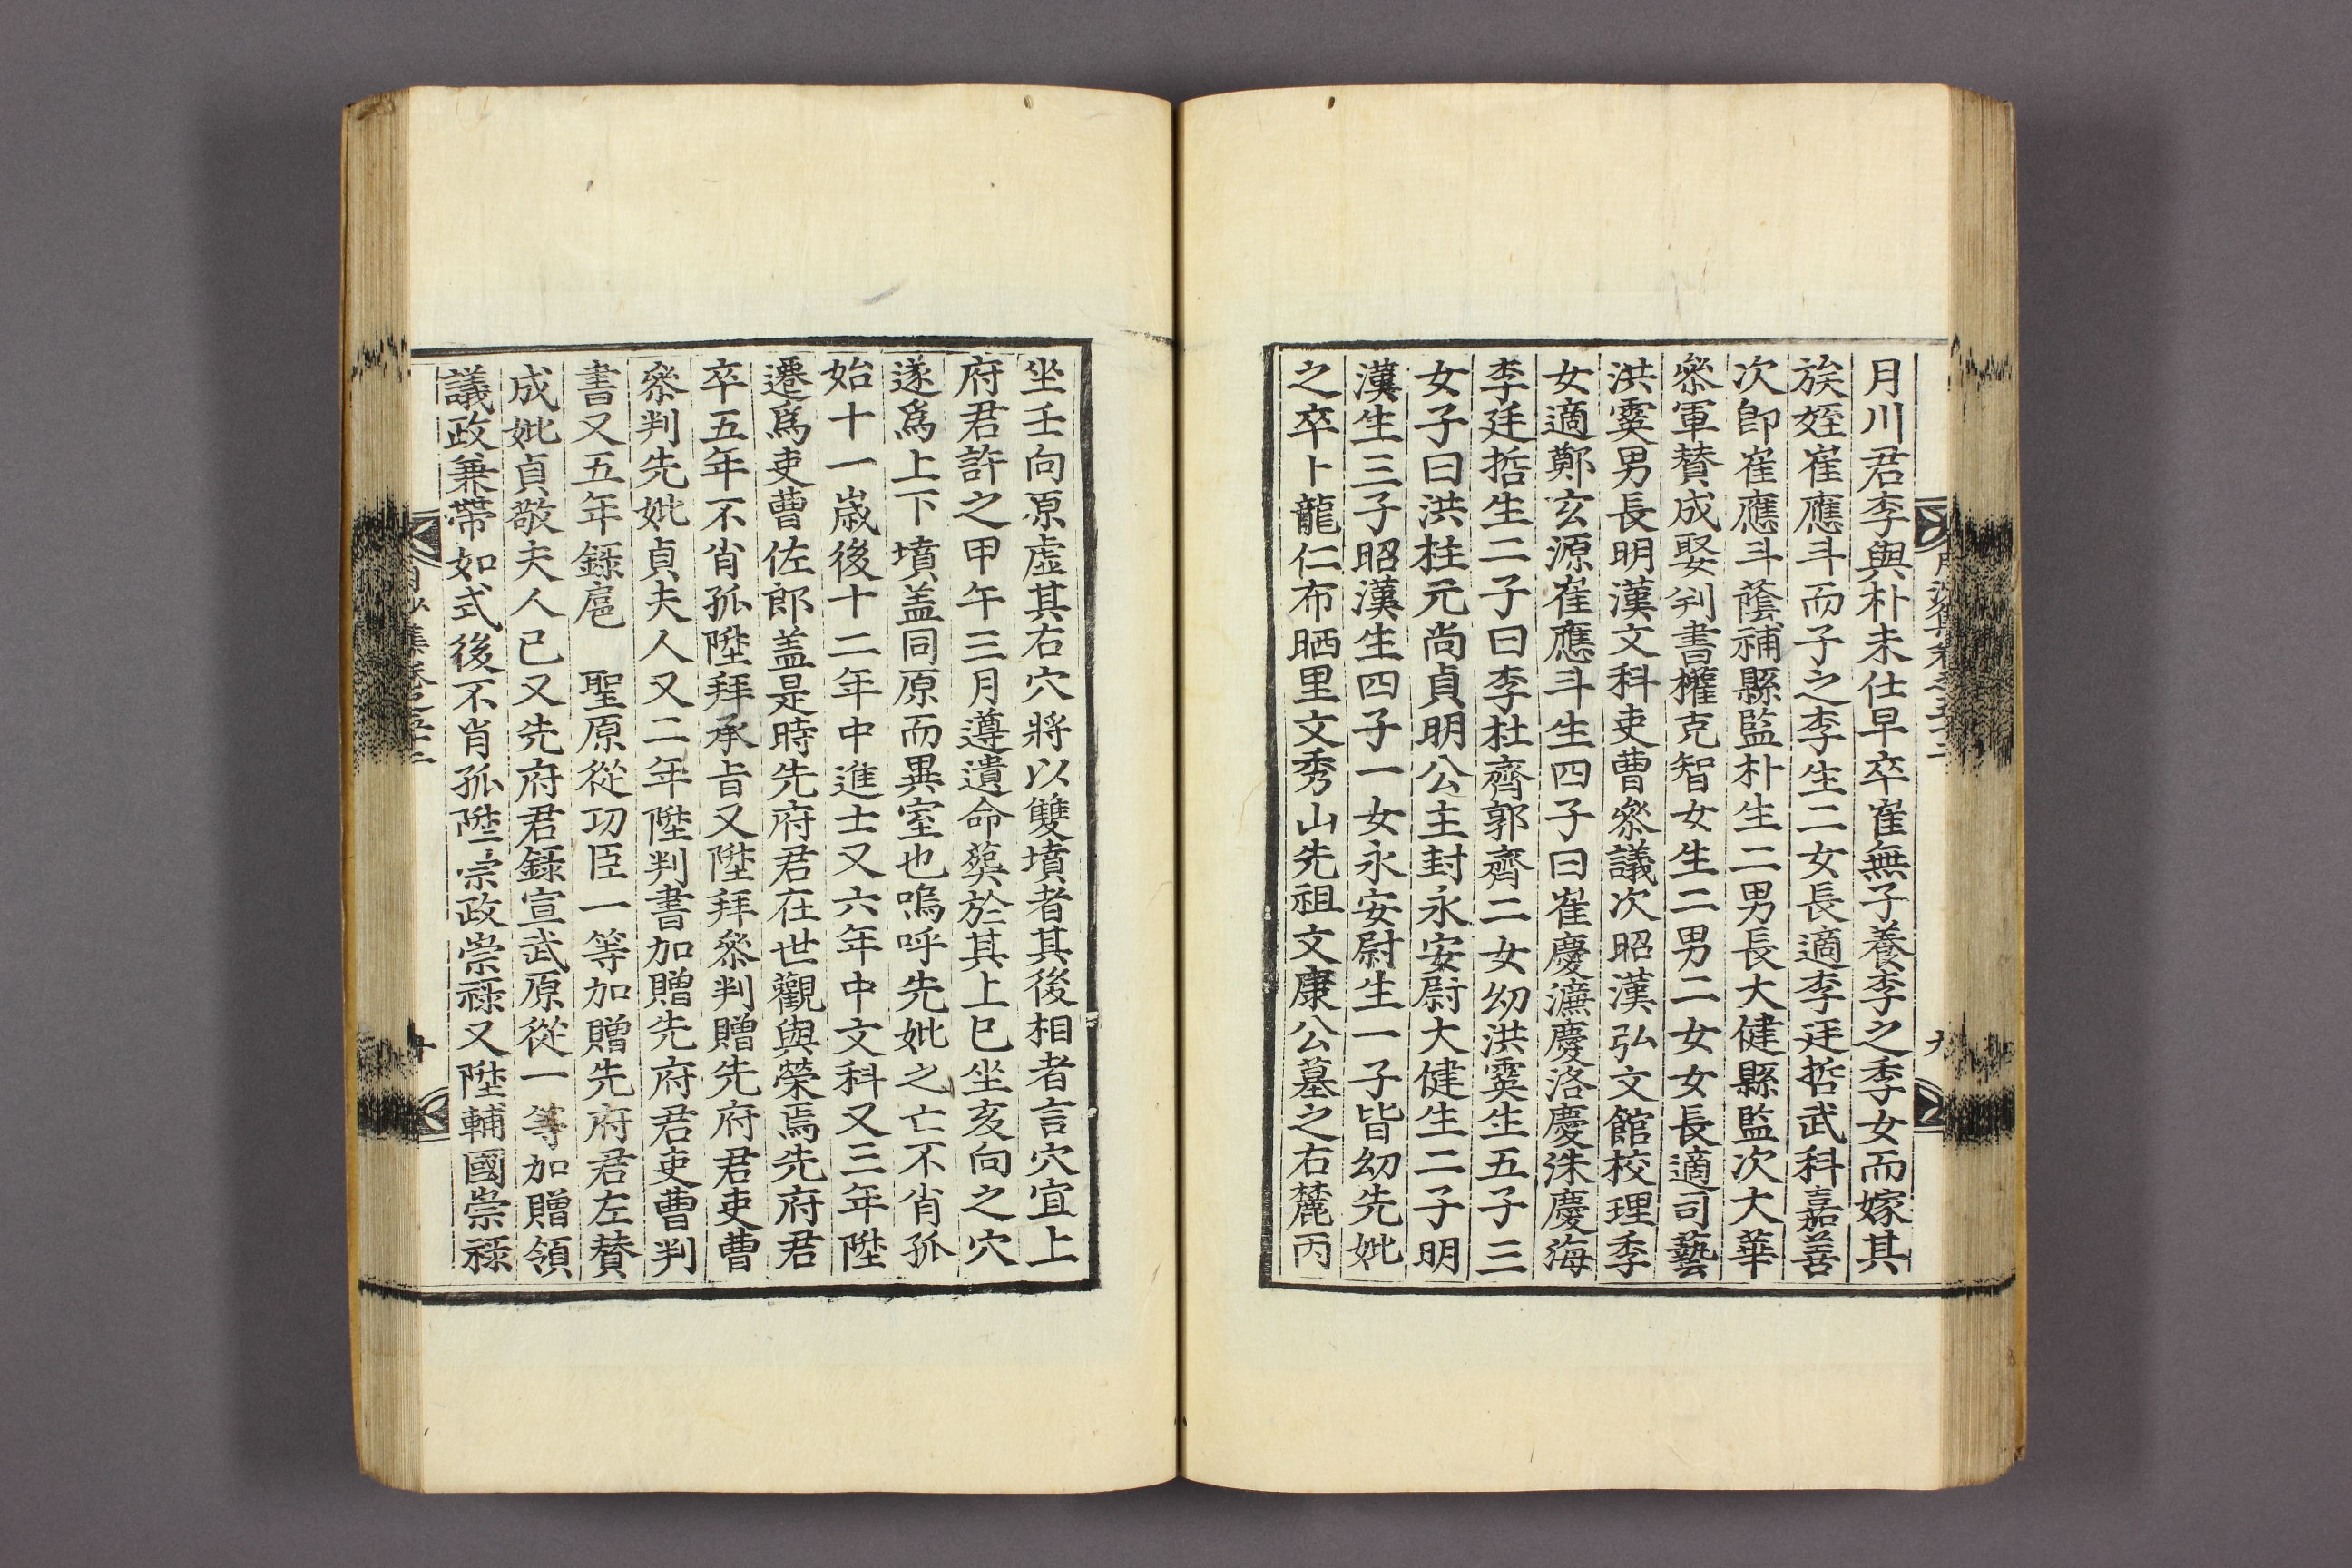 月川君李與朴未仕早卒崔無子養李之季女而嫁其
族姪崔應斗而子之李生二女長適李廷哲武科嘉善
次卽崔應斗蔭補縣監朴生二男長大健縣監次大華
叅軍賛成娶判書權克智女生二男二女女長適司藝
洪霙男長明漢文科吏曹叅議次昭漢弘文館校理季
女適鄭玄源崔應斗生四子曰崔慶濂慶洛慶洙慶海
李廷哲生二子曰李杜齊郭齊二女幼洪霙生五子三
女子曰洪柱元尚貞明公主封永安尉大健生二子明
漢生三子昭漢生四子一女永安尉生一子皆幼先妣
之卒卜龍仁布晒里文秀山先祖文康公墓之右麓丙
坐壬向原虛其右穴將以雙墳者其後相者言穴宜上
府君許之甲午三月遵遺命葬於其上巳坐亥向之穴
遂爲上下墳盖同原而異室也嗚呼先妣之亡不肖孤
始十一歲後十二年中進士又六年中文科又三年陞
遷爲吏曹佐郎盖是時先府君在世觀與榮焉先府君
卒五年不肖孤陞拜承旨又陞拜叅判贈先府君吏曹
叅判先妣貞夫人又二年陞判書加贈先府君吏曹判
書又五年錄扈 聖原從功臣一等加贈先府君左賛
成妣貞敬夫人已又先府君錄宣武原從一等加贈領
議政兼帶如式後不肖孤陞崇政崇祿又陞輔國崇祿